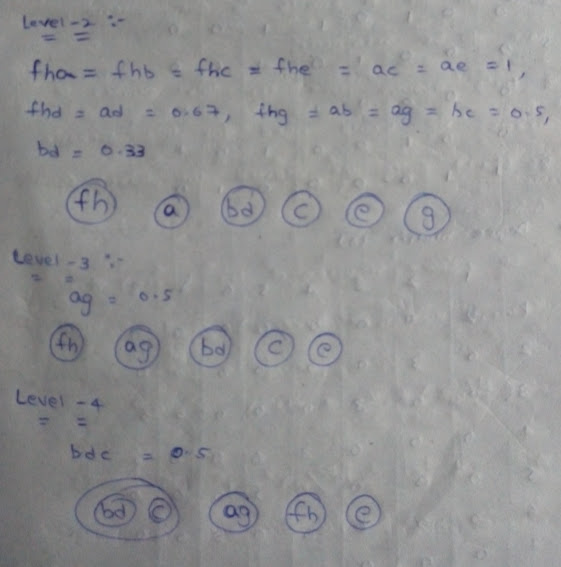 Level -2 :-
fha = fhb = fhc = fhe = ac = ae = 1,
fhd = ad = 0.67, fhg = ab = ag = bc = 0.5,
bd = 0.33
fh a bd c e g
Level -3 :-
ag = 0.5
fh ag bd c e
Level -4
bdc = 0.5
bd c ag fh e